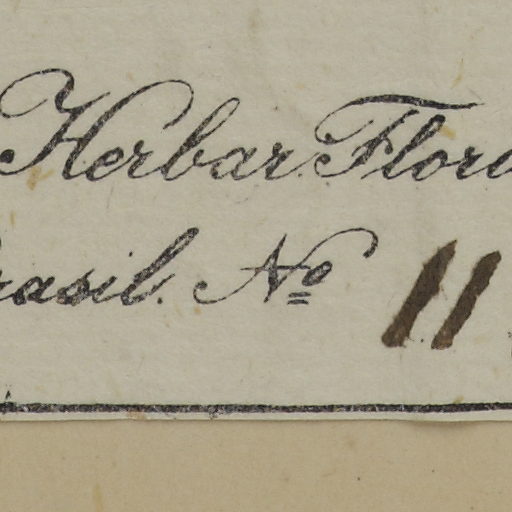 Herbar. Flora
rasil. No 11